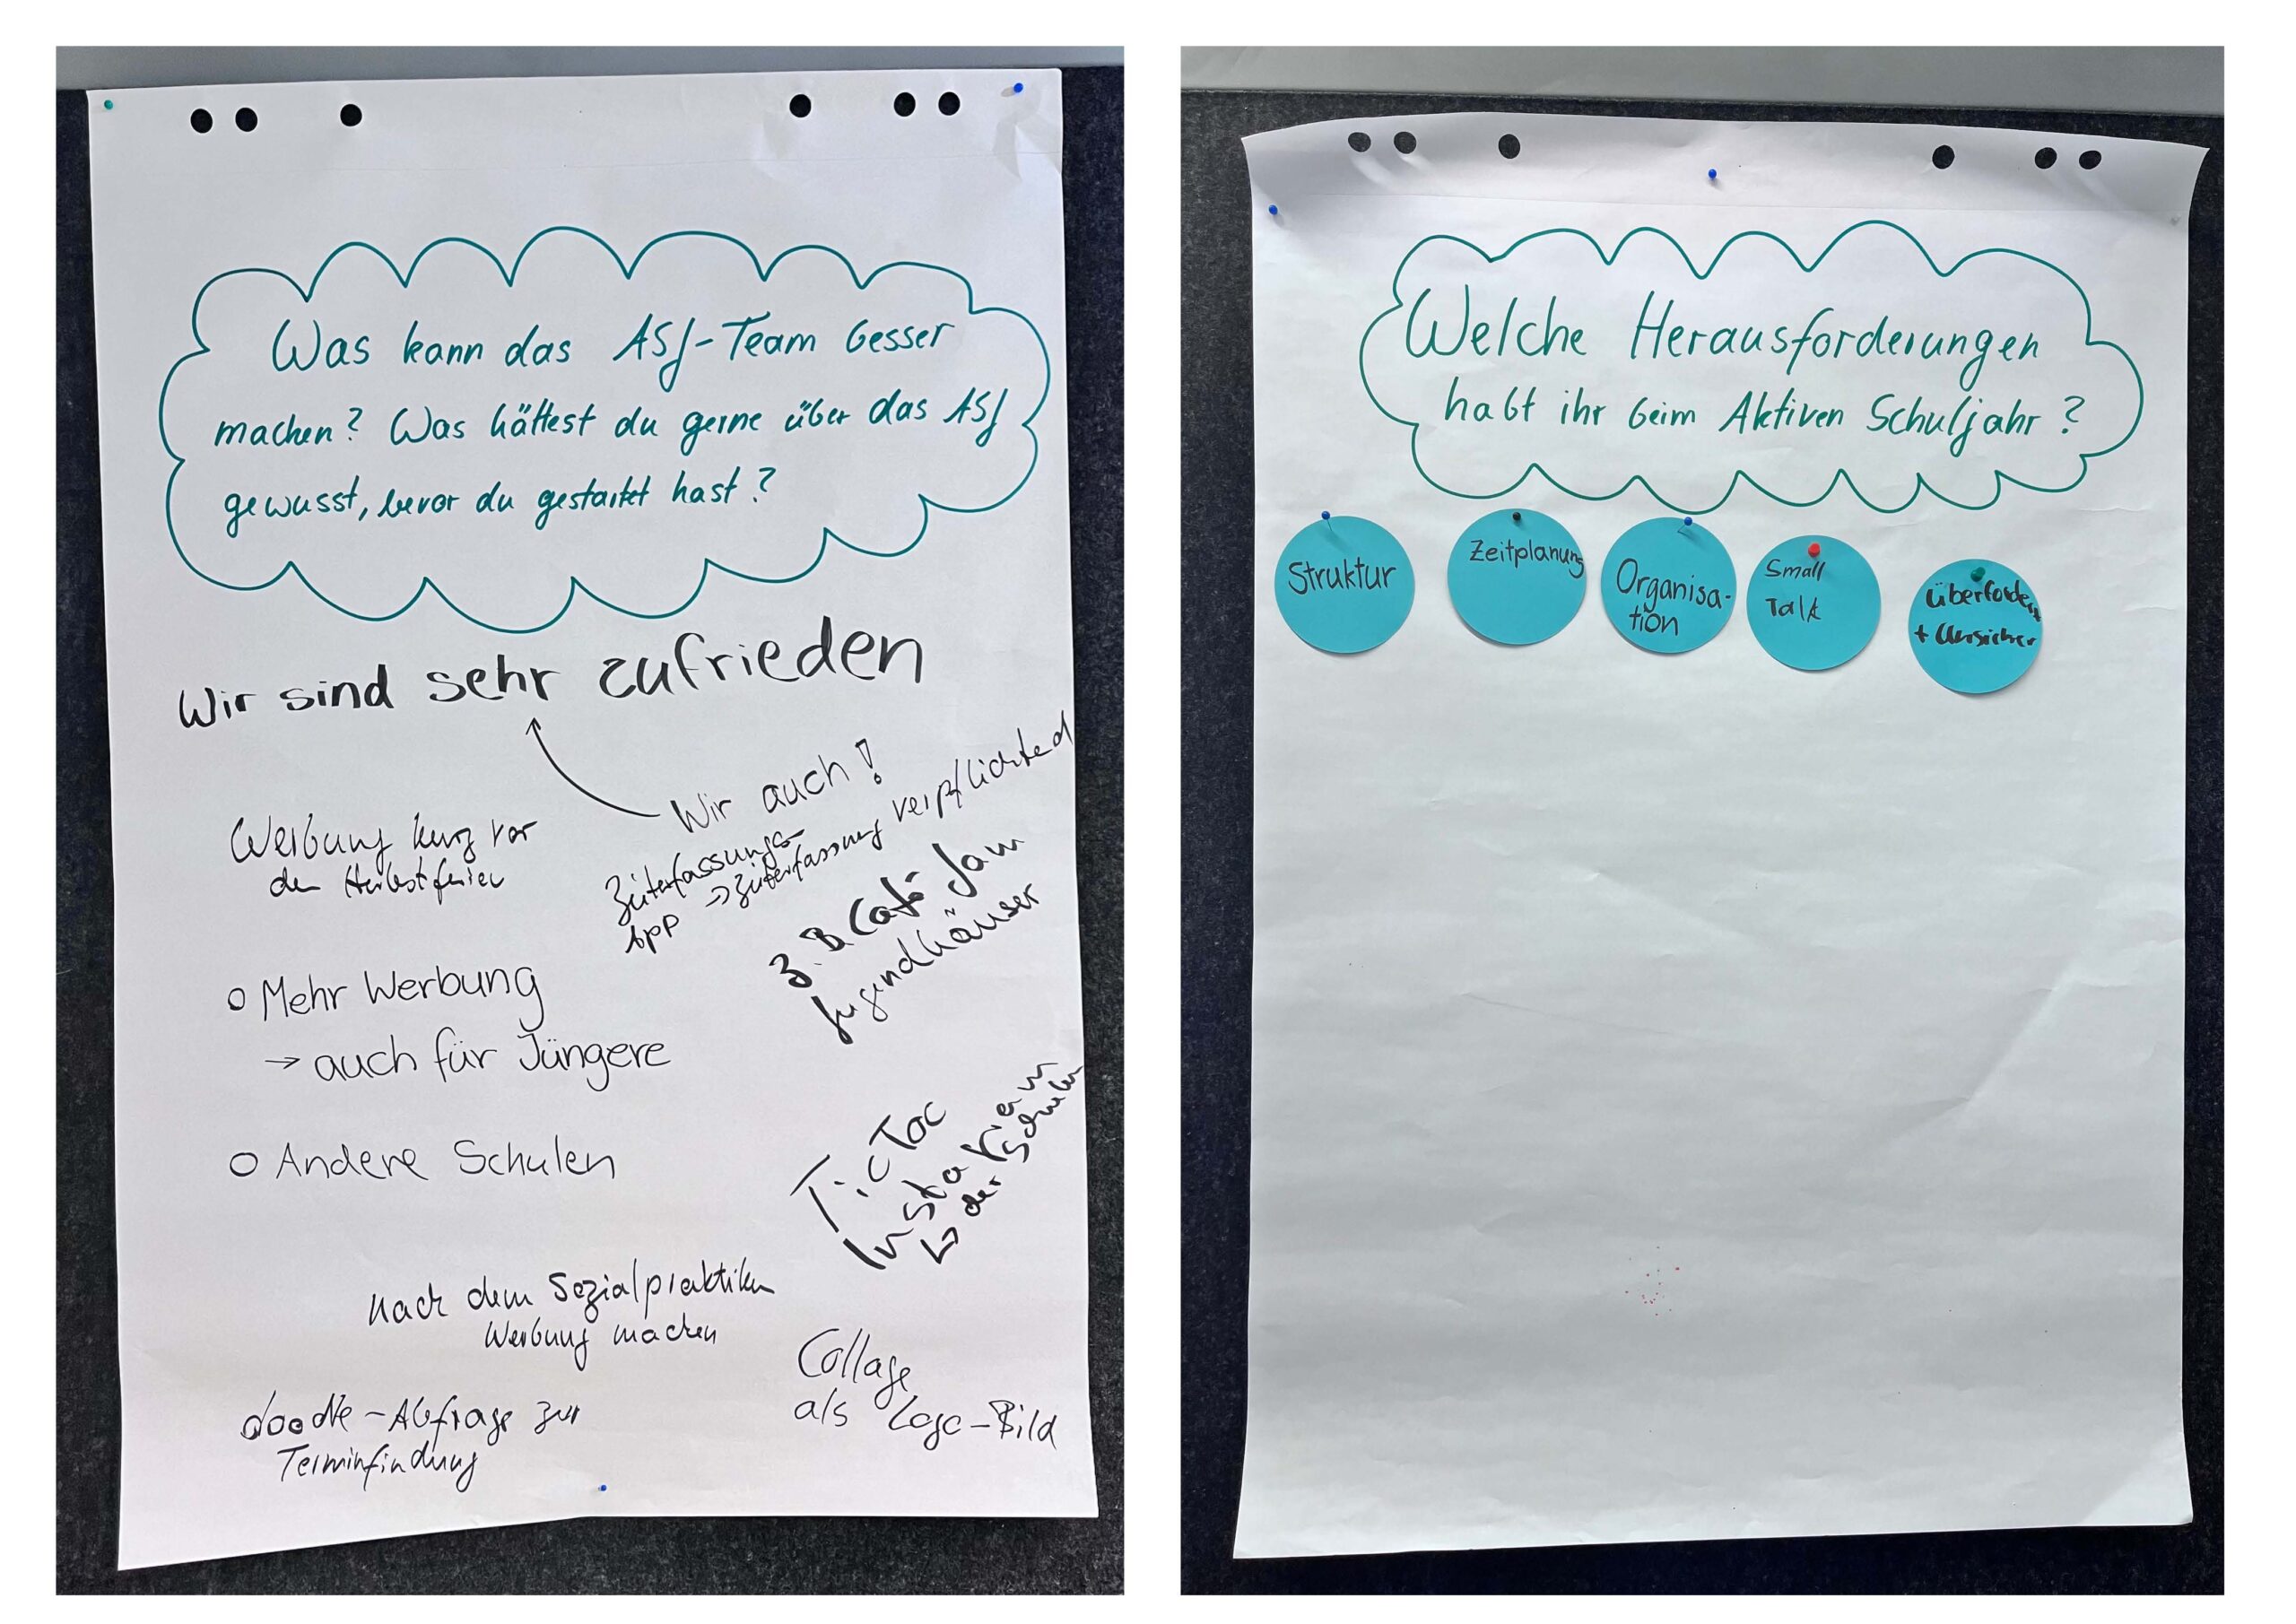 Was kann das ASJ-Team besser
machen? Was hättest du gerne über das ASJ
gewusst, bevor du gestartet hast?
Wir sind sehr zufrieden
Wir auch!
Werbung kurz vor
den Herbstferien
Zeiterfassungs-
App → Zeiterfassung verpflichted
z.B. Café Jam
Jugendhäuser
o Mehr Werbung
→ auch für Jüngere
o Andere Schulen
TicToc
Insta
↳ der Schulen
nach dem Sozialpraktikum
Werbung machen
Collage
als Logo-Bild
doodle-Abfrage zur
Terminfindung
Welche Herausforderungen
habt ihr beim Aktiven Schuljahr?
Struktur
Zeitplanung
Organisa-
tion
Small
Talk
überfordert
+ Unsicher